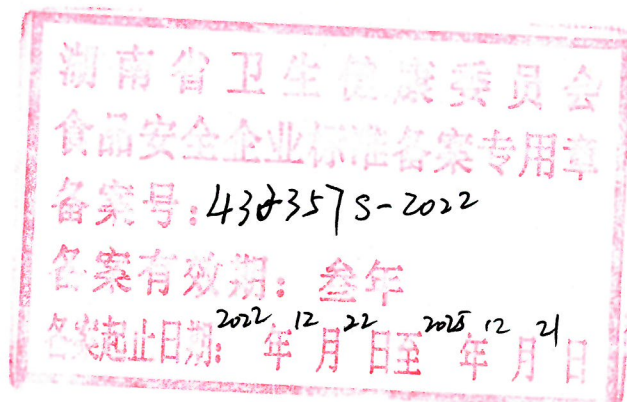 湖南省卫生健康委员会
食品安全企业标准备案专用章
备案号：S-2022
备案有效期：叁年
备案起止日期：2022年12月22日至2025年12月21日